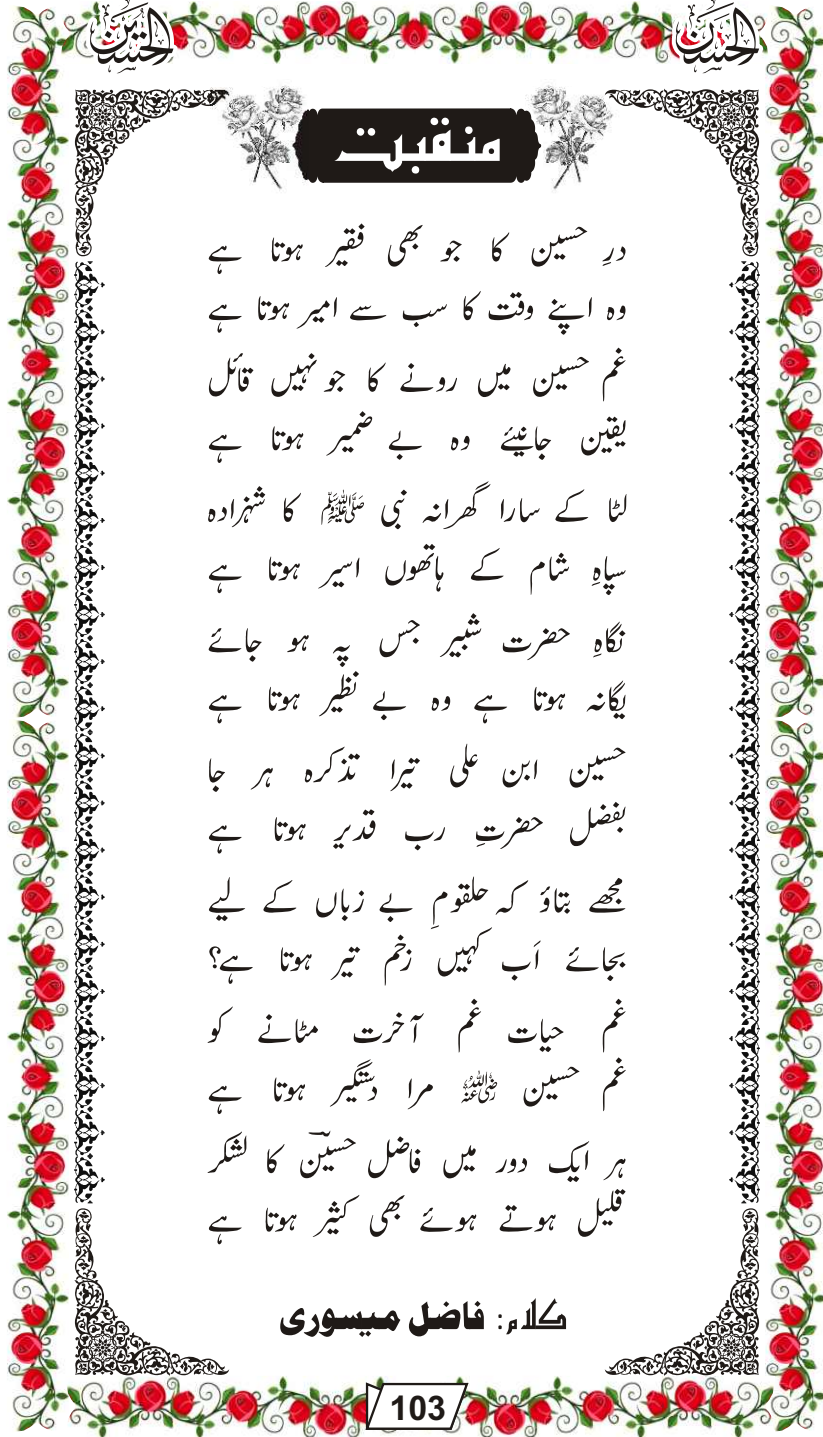 الحسین الحسین
منقبت
درِ حسین کا جو بھی فقیر ہوتا ہے
وہ اپنے وقت کا سب سے امیر ہوتا ہے
غم حسین میں رونے کا جو نہیں قائل
یقین جانیئے وہ بے ضمیر ہوتا ہے
لٹا کے سارا گھرانہ نبی ﷺ کا شہزادہ
سپاہِ شام کے ہاتھوں اسیر ہوتا ہے
نگاہِ حضرت شبیر جس پہ ہو جائے
یگانہ ہوتا ہے وہ بے نظیر ہوتا ہے
حسین ابن علی تیرا تذکرہ ہر جا
بفضل حضرتِ رب قدیر ہوتا ہے
مجھے بتاؤ کہ حلقومِ بے زباں کے لیے
بجائے اَب کہیں زخم تیر ہوتا ہے؟
غم حیات غم آخرت مٹانے کو
غم حسین رضی اللہ عنہ مرا دستگیر ہوتا ہے
ہر ایک دور میں فاضل حسینؓ کا لشکر
قلیل ہوتے ہوئے بھی کثیر ہوتا ہے
کلام: فاضل میسوری
103